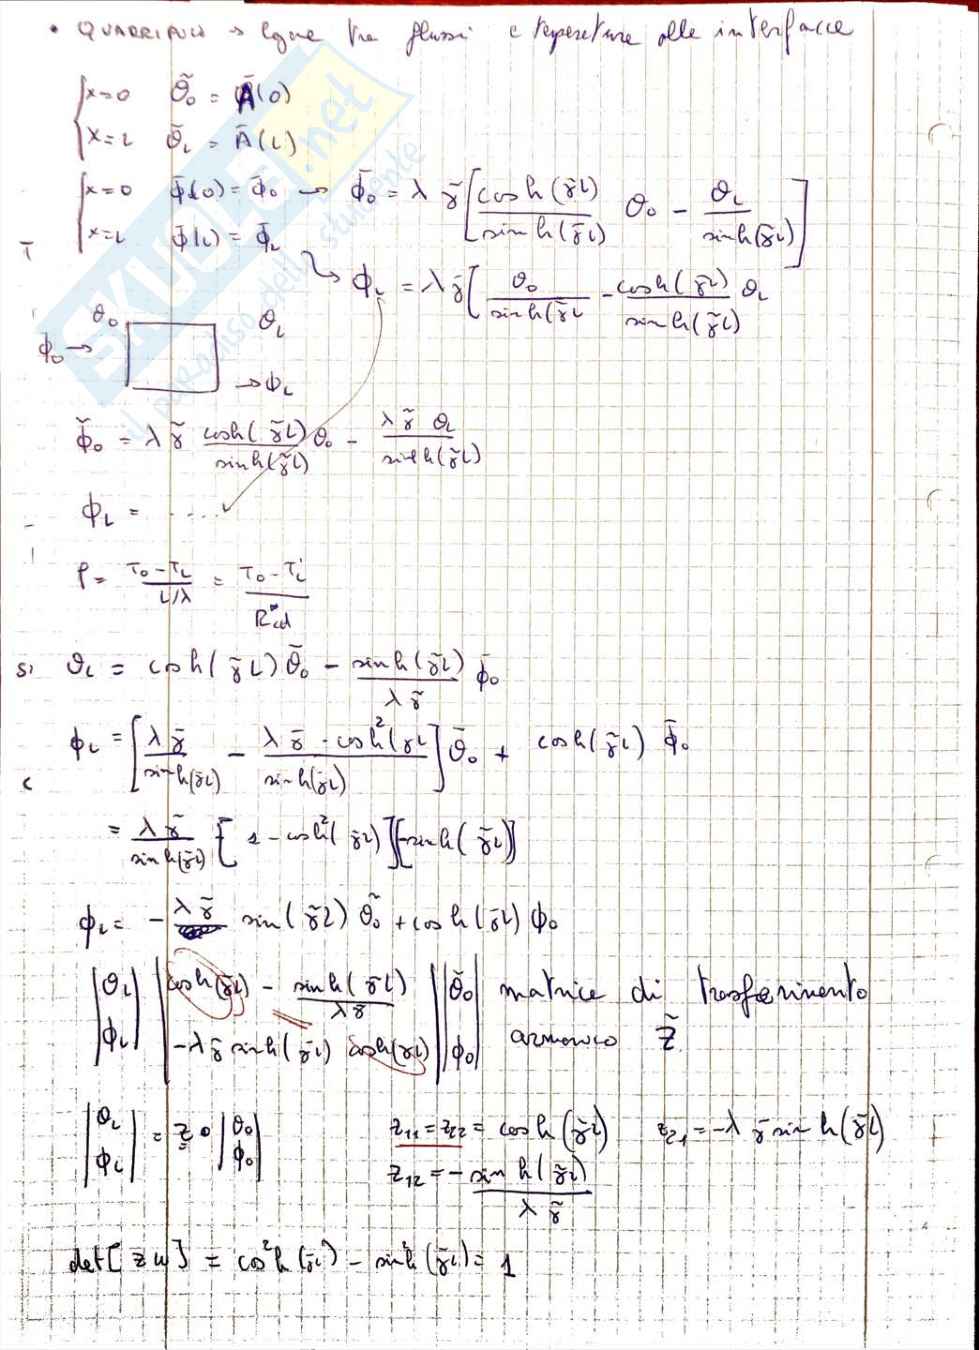 • QUADRIPOLO → legame tra flussi e temperature alle interfacce
{ x=0 θ̃₀ = Ã(0)
x=L θ̃_L = Ã(L)
{ x=0 φ̄(0) = φ̄₀ → φ̄₀ = λ γ̃ [ cosh(γ̃L)/sinh(γ̃L) θ₀ − θ_L/sinh(γ̃L) ]
x=L φ̄(L) = φ̄_L ↳ φ_L = λ γ̃ [ θ₀/sinh(γ̃L − cosh(γ̃L)/sinh(γ̃L) θ_L
θ₀ θ_L
φ₀ → → φ_L
φ̃₀ = λ γ̃ cosh(γ̃L)/sinh(γ̃L) θ₀ − λ γ̃ θ_L/sinh(γ̃L)
φ_L = .....
φ = T₀−T_L / L/λ = T₀−T_L / R*cd
θ_L = cosh(γ̃L) θ̄₀ − sinh(γ̃L)/λγ̃ φ̄₀
φ_L = [ λγ̃/sinh(γ̃L) − λγ̃·cosh²(γL/sinh(γ̃L) ] θ̄₀ + cosh(γ̃L) φ̄₀
= λγ̃/sinh(γ̃L) [1−cosh²(γ̃L)] [−sinh(γ̃L)]
φ_L = − λγ̃ sin(γ̃L) θ̃₀ + cosh(γ̃L) φ₀
|θ_L| |cosh(γ̃L) − sinh(γ̃L)/λγ̃| |θ̃₀| matrice di trasferimento
|φ_L| |−λγ̃ sinh(γ̃L) cosh(γ̃L)| |φ₀| armonico Z̃
|θ_L| = z • |θ₀| z₁₁=z₂₂= cosh(γ̃L) z₂₁=−λ γ̃ sinh(γ̃L)
|φ_L| |φ₀| z₁₂ = − sinh(γ̃L)/λ γ̃
det[zω] = cos²h(γ̃L) − sin²h(γ̃L) = 1
SKUOLA.net
il paradiso dello studente